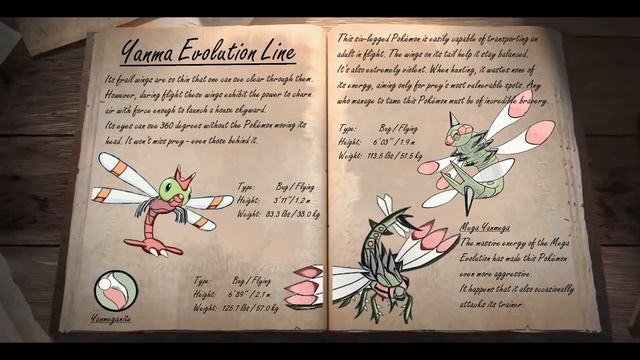 Yanma Evolution Line
Its frail wings are so thin that one can see clear through them.
However, during flight these wings exhibit the power to churn
air with force enough to launch a house skyward.
Its eyes can see 360 degrees without the Pokémon moving its
head. It won't miss prey - even those behind it.
Type: Bug / Flying
Height: 3'11" / 1.2 m
Weight: 83.3 lbs / 38.0 kg
Type: Bug / Flying
Height: 6'89" / 2.1 m
Weight: 125.7 lbs / 57.0 kg
Yanmeganite
This six-legged Pokémon is easily capable of transporting an
adult in flight. The wings on its tail help it stay balanced.
It's also extremely violent. When hunting, it wastes none of
its energy, aiming only for prey's most vulnerable spots. Any
who manage to tame this Pokémon must be of incredible bravery.
Type: Bug / Flying
Height: 6'03" / 1.9 m
Weight: 113.5 lbs / 51.5 kg
Mega Yanmega
The massive energy of the Mega
Evolution has made this Pokémon
even more aggressive.
It happens that it also occasionally
attacks its trainer.